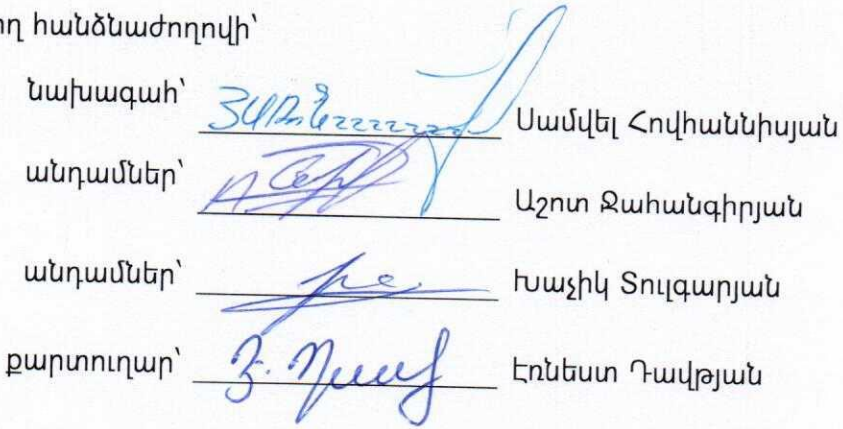 հանձնաժողովի՝
նախագահ՝ Սամվել Հովհաննիսյան
անդամներ՝ Աշոտ Ջահանգիրյան
անդամներ՝ Խաչիկ Տուլգարյան
քարտուղար՝ Էռնեստ Դավթյան